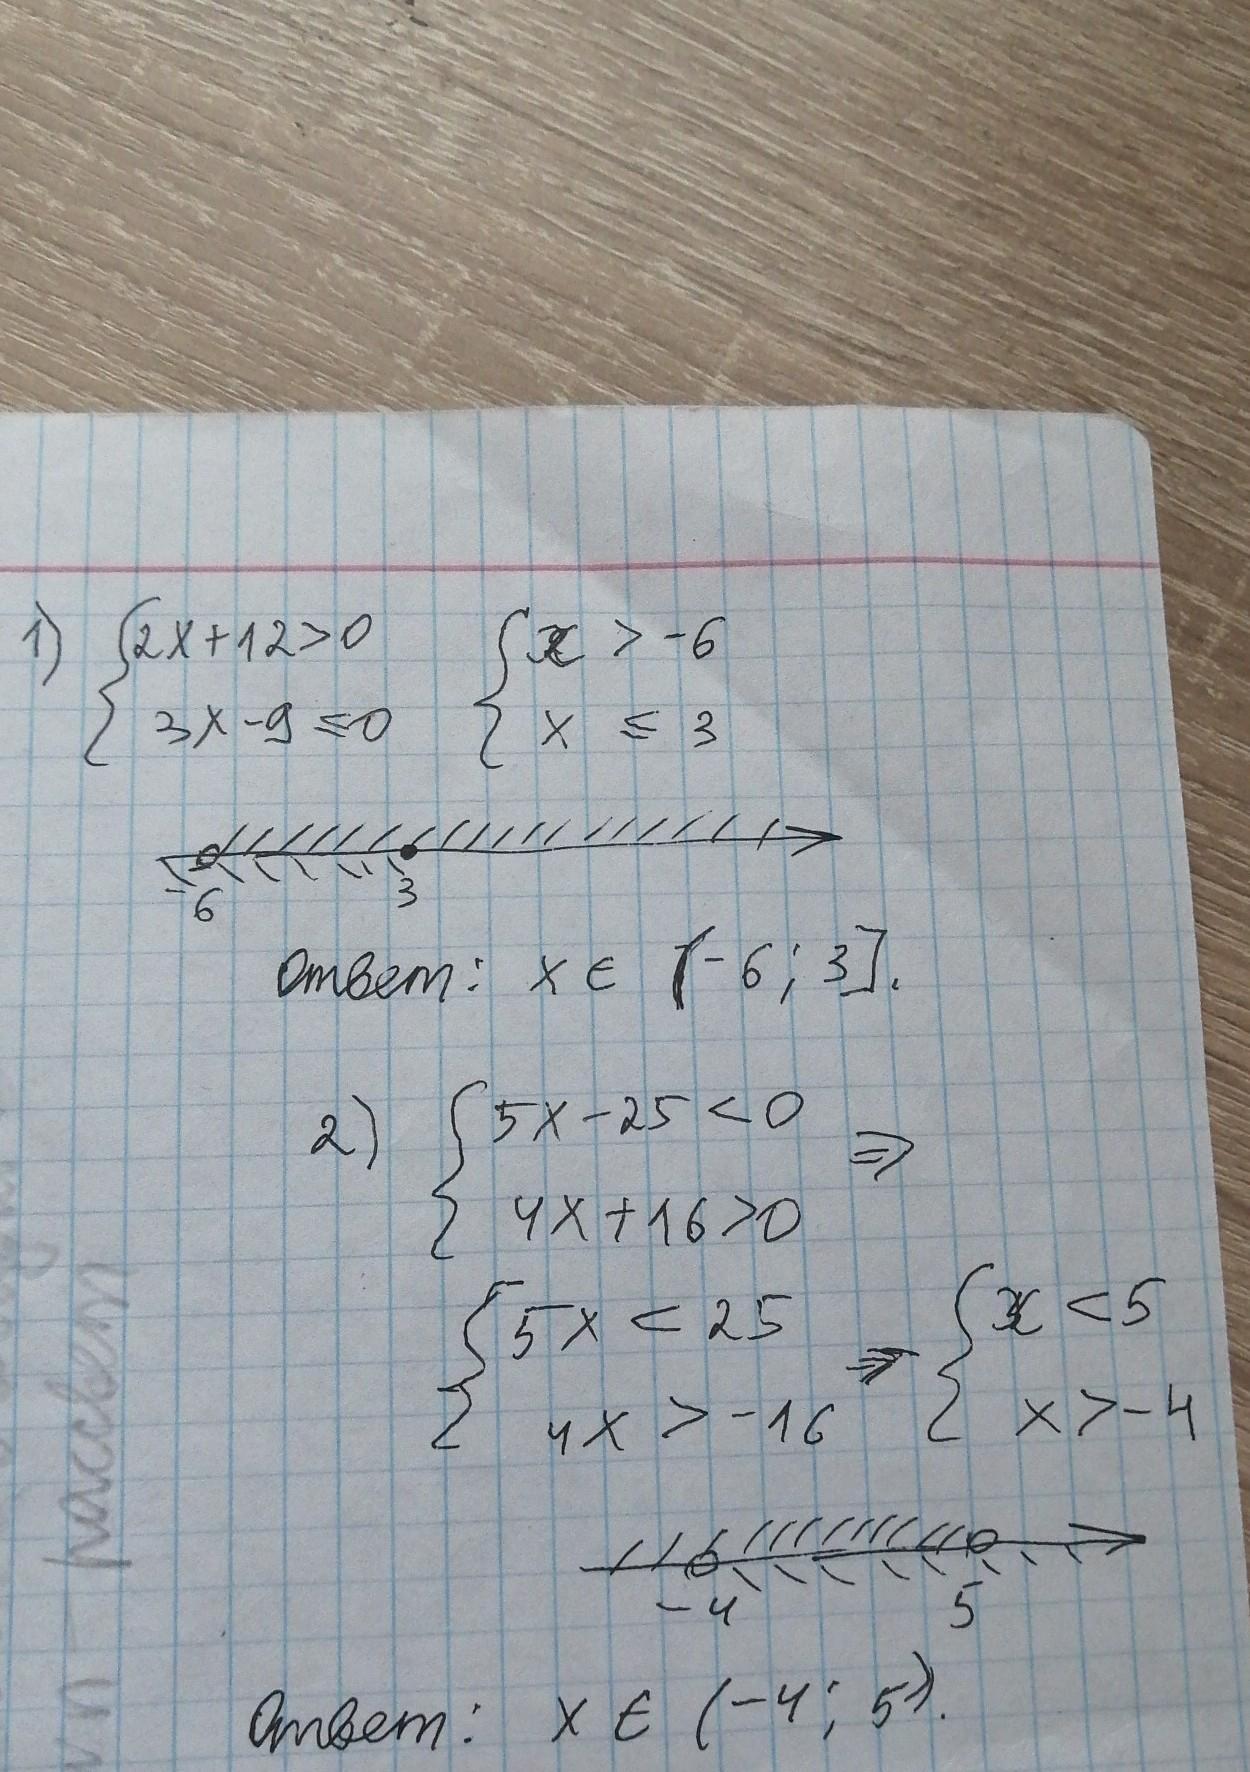 1) { 2x+12>0 { x > -6
3x-9 ≤ 0 x ≤ 3
-6 3
Ответ: x ∈ (-6; 3].
2) { 5x-25<0 ⇒
4x+16>0
{ 5x < 25 ⇒ { x < 5
4x > -16 x > -4
-4 5
Ответ: x ∈ (-4; 5).